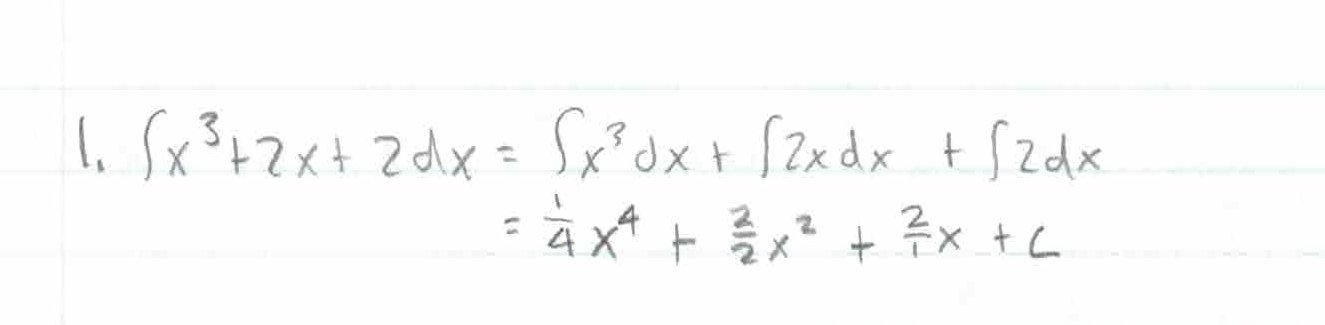 1. ∫x³+2x+2dx = ∫x³dx + ∫2xdx + ∫2dx
= 1/4 x⁴ + 2/2 x² + 2/1 x + C